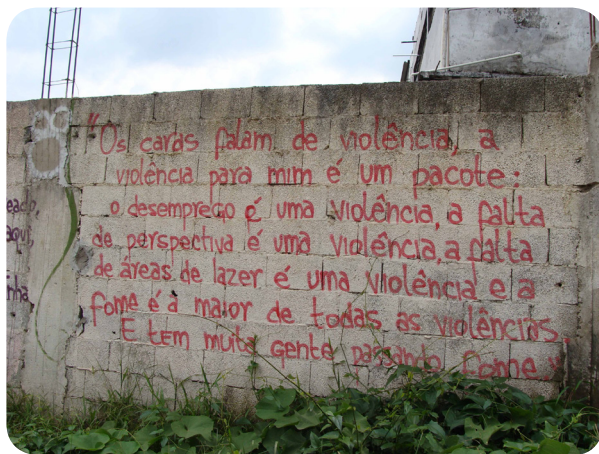 "Os caras falam de violência, a
violência para mim é um pacote:
o desemprego é uma violência, a falta
de perspectiva é uma violência, a falta
de áreas de lazer é uma violência e a
fome é a maior de todas as violências.
E tem muita gente passando fome"
aqui,
nha